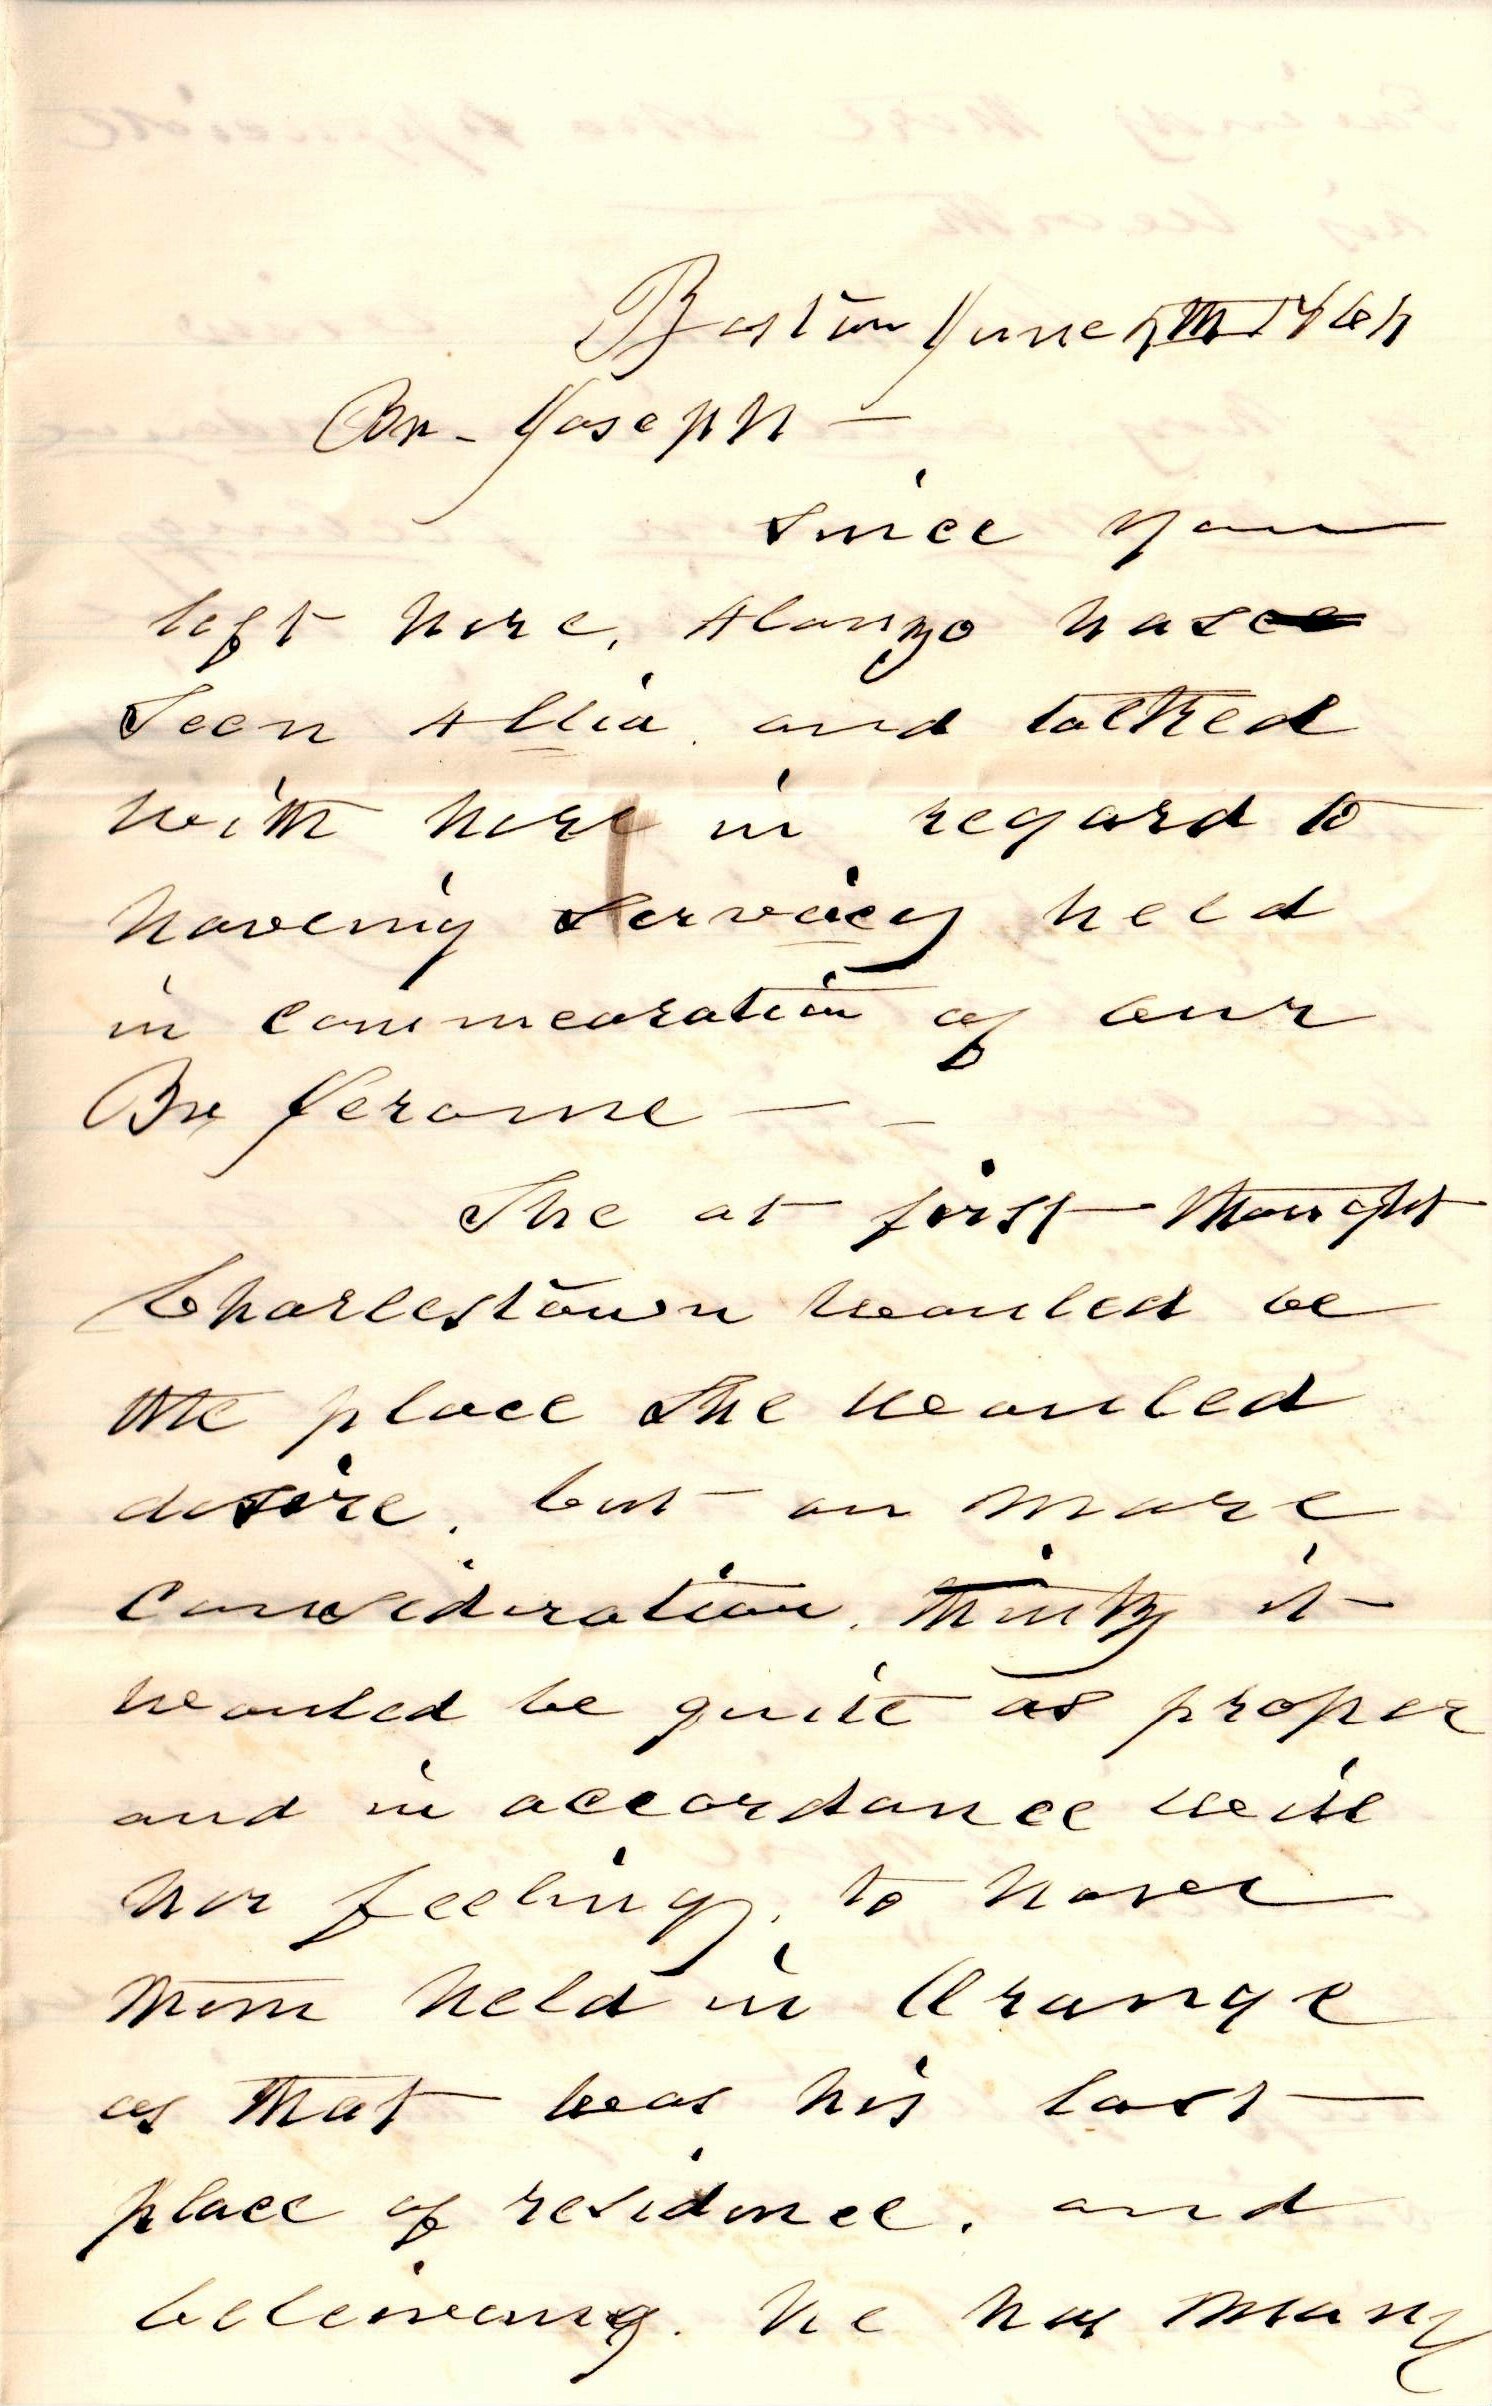 Boston June 5th 1865
Br - Joseph -
Since you
left here, Alonzo has
Seen Allia and talked
with here in regard to
haveing Services held
in commeoration of our
Br Jerome -
She at first thought
Charlestown wouled be
the place She wouled
desire, but on more
consideration, thinks it
wouled be quite as proper
and in accordance with
her feelings, to have
them held in Orange
as that was his last
place of residence, and
beleiveing he has many